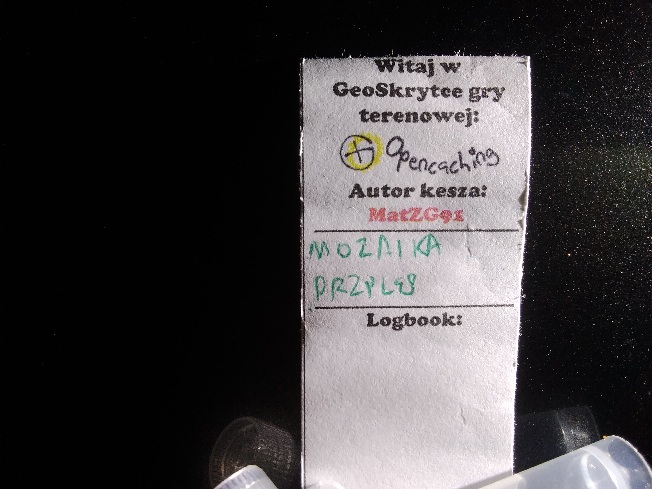 Witaj w
GeoSkrytce gry
terenowej:
Opencaching
Autor kesza:
MatZG91
MOZAIKA
Logbook: